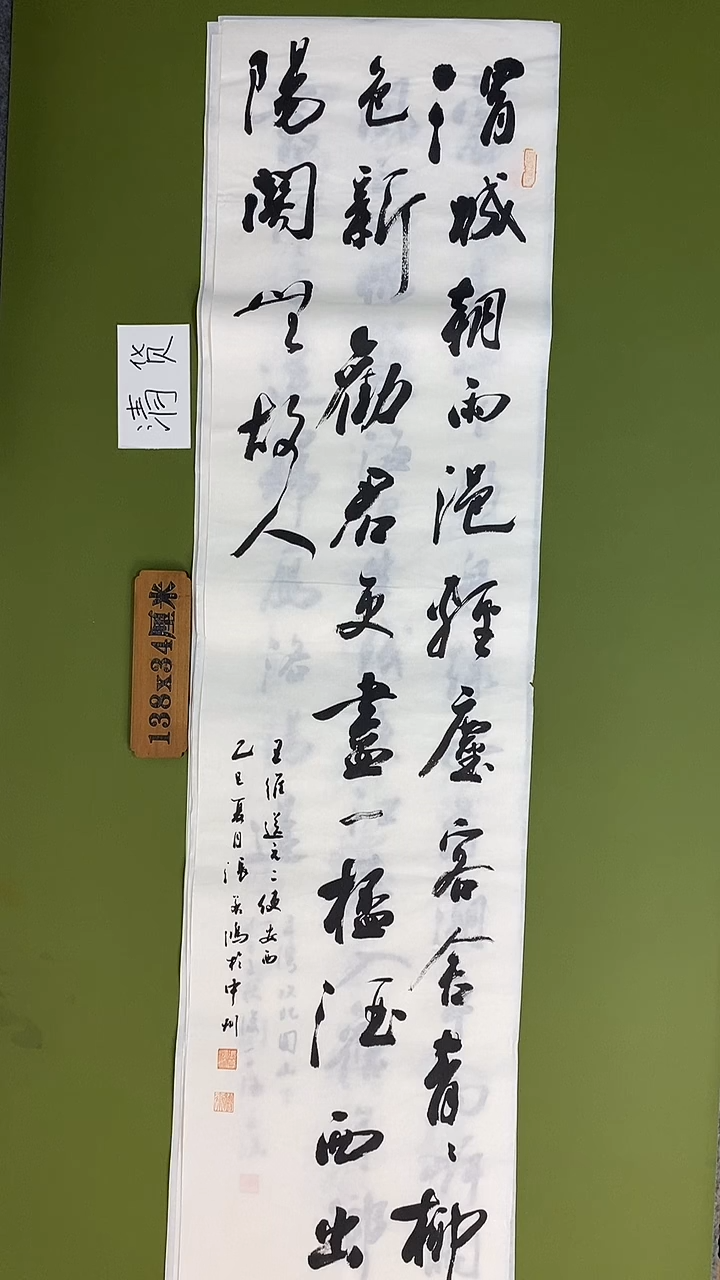 渭城朝雨浥輕塵客舍青〻柳
色新勸君更盡一杯酒西出
陽関無故人
王維送元二使安西
乙巳夏月張美鴻於中州
清货
138x34厘米